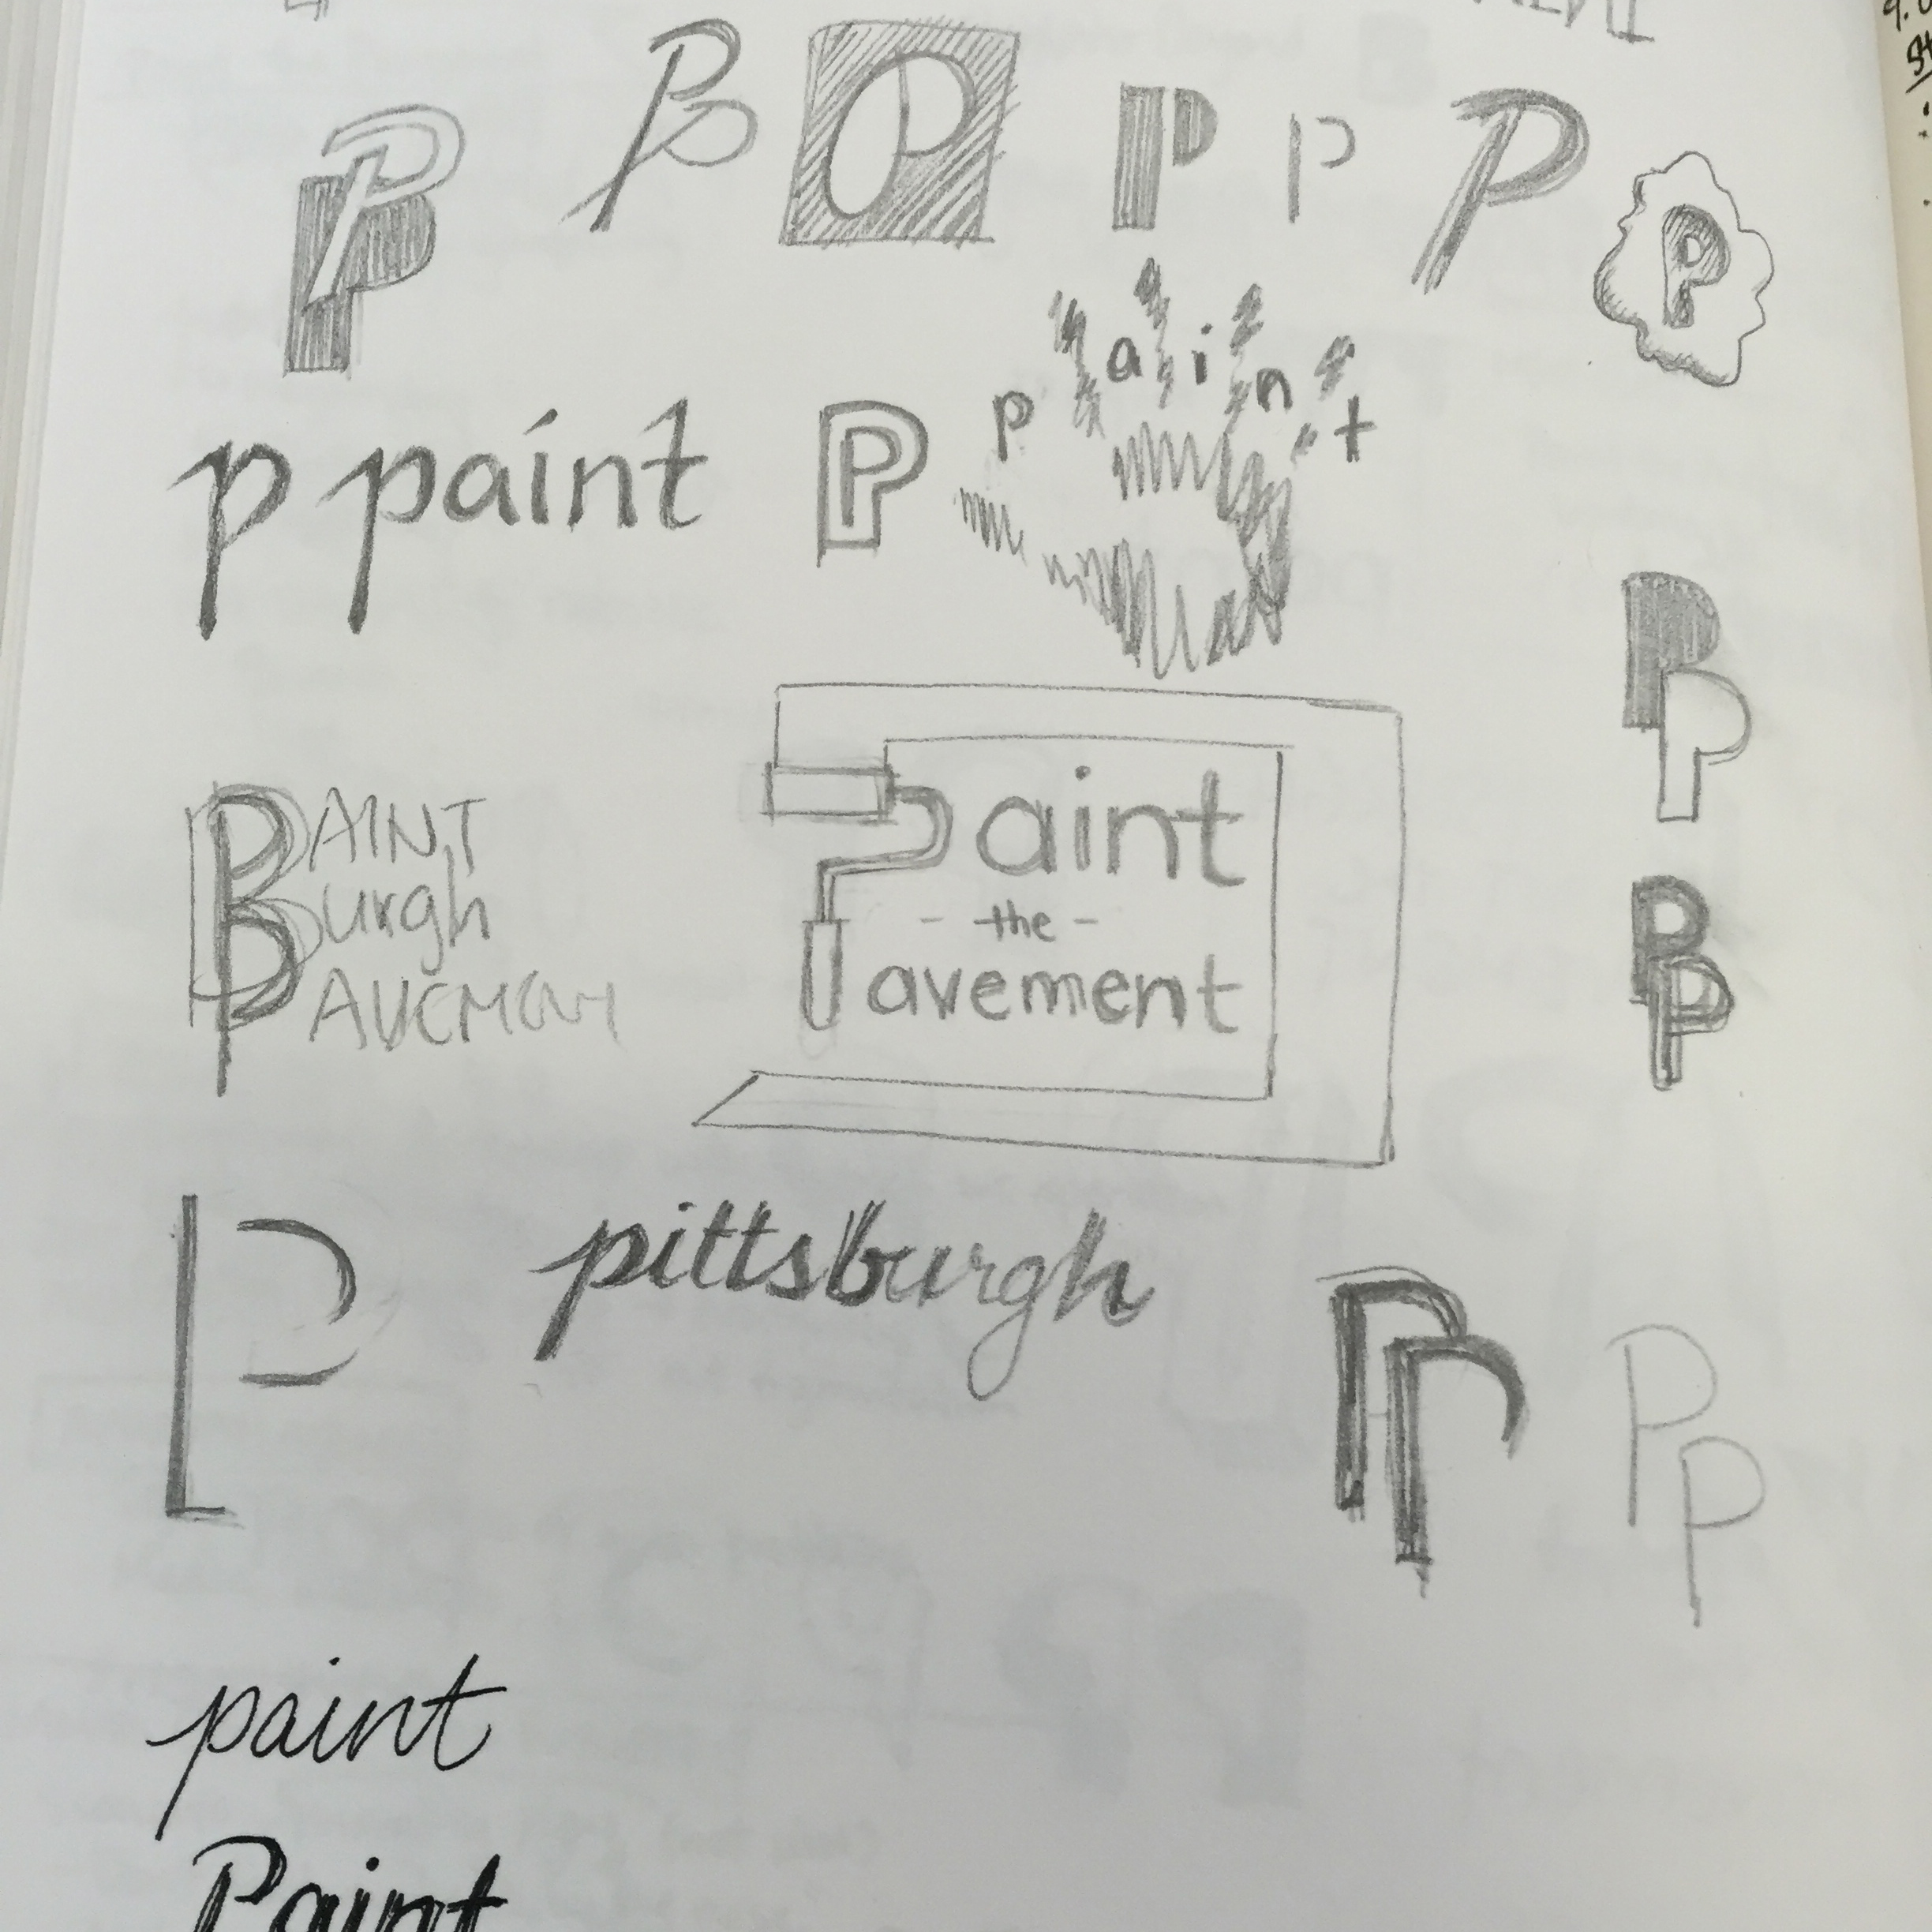 P
P
P
P
P
P
P
P
P
p
paint
P
paint
P
P
PAINT
Burgh
Paint
- the -
Pavement
P
P
P
pittsburgh
P
P
P
P
P
paint
Paint